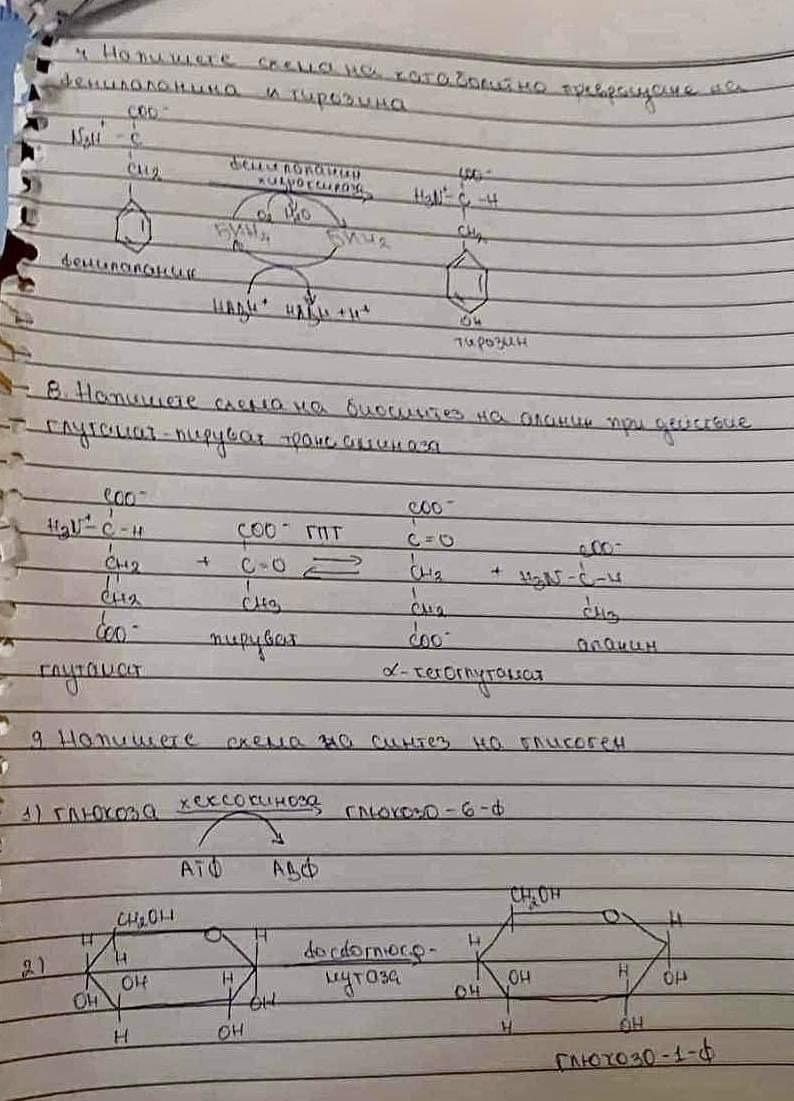 7. Напишете схема на катаболитно превращане на
фенилаланина и тирозина
COO⁻
N₃H⁺ - C
CH₂
фенилаланин
фенилаланин
хидроксилаза
O₂ H₂O
БИН₄ БИН₂
НАДН⁺ НАДН + H⁺
COO⁻
H₃N⁺ - C - H
CH₂
OH
тирозин
8. Напишете схема на биосинтез на аланин при действие
глутамат-пируват трансаминаза
COO⁻
H₃N⁺ - C - H
CH₂
CH₂
COO⁻
глутамат
+
COO⁻
C=O
CH₃
пируват
ГПТ
COO⁻
C=O
CH₂
CH₂
COO⁻
α-кетоглутамат
+
COO⁻
H₃N - C - H
CH₃
аланин
9 Напишете схема на синтез на гликоген
1) глюкоза хексокиноза глюкозо-6-ф
АТФ АДФ
2)
CH₂OH
O
H H
H
OH H
OH OH
H OH
мутаза
CH₂OH
O H
H
OH H OH
OH
H OH
глюкозо-1-ф